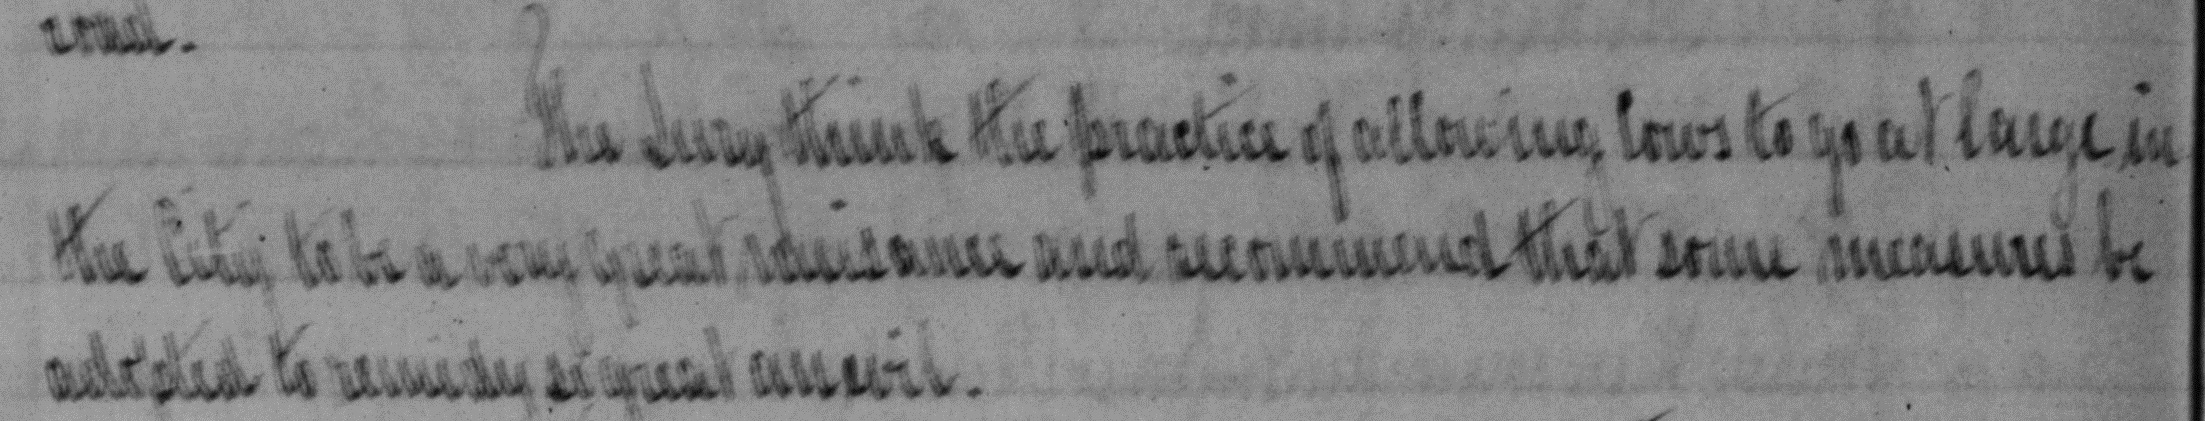 road.
The Jury think the practice of allowing Cows to go at large in
the City to be a very great nuisance and recommend that some measures be
adopted to remedy so great an evil.